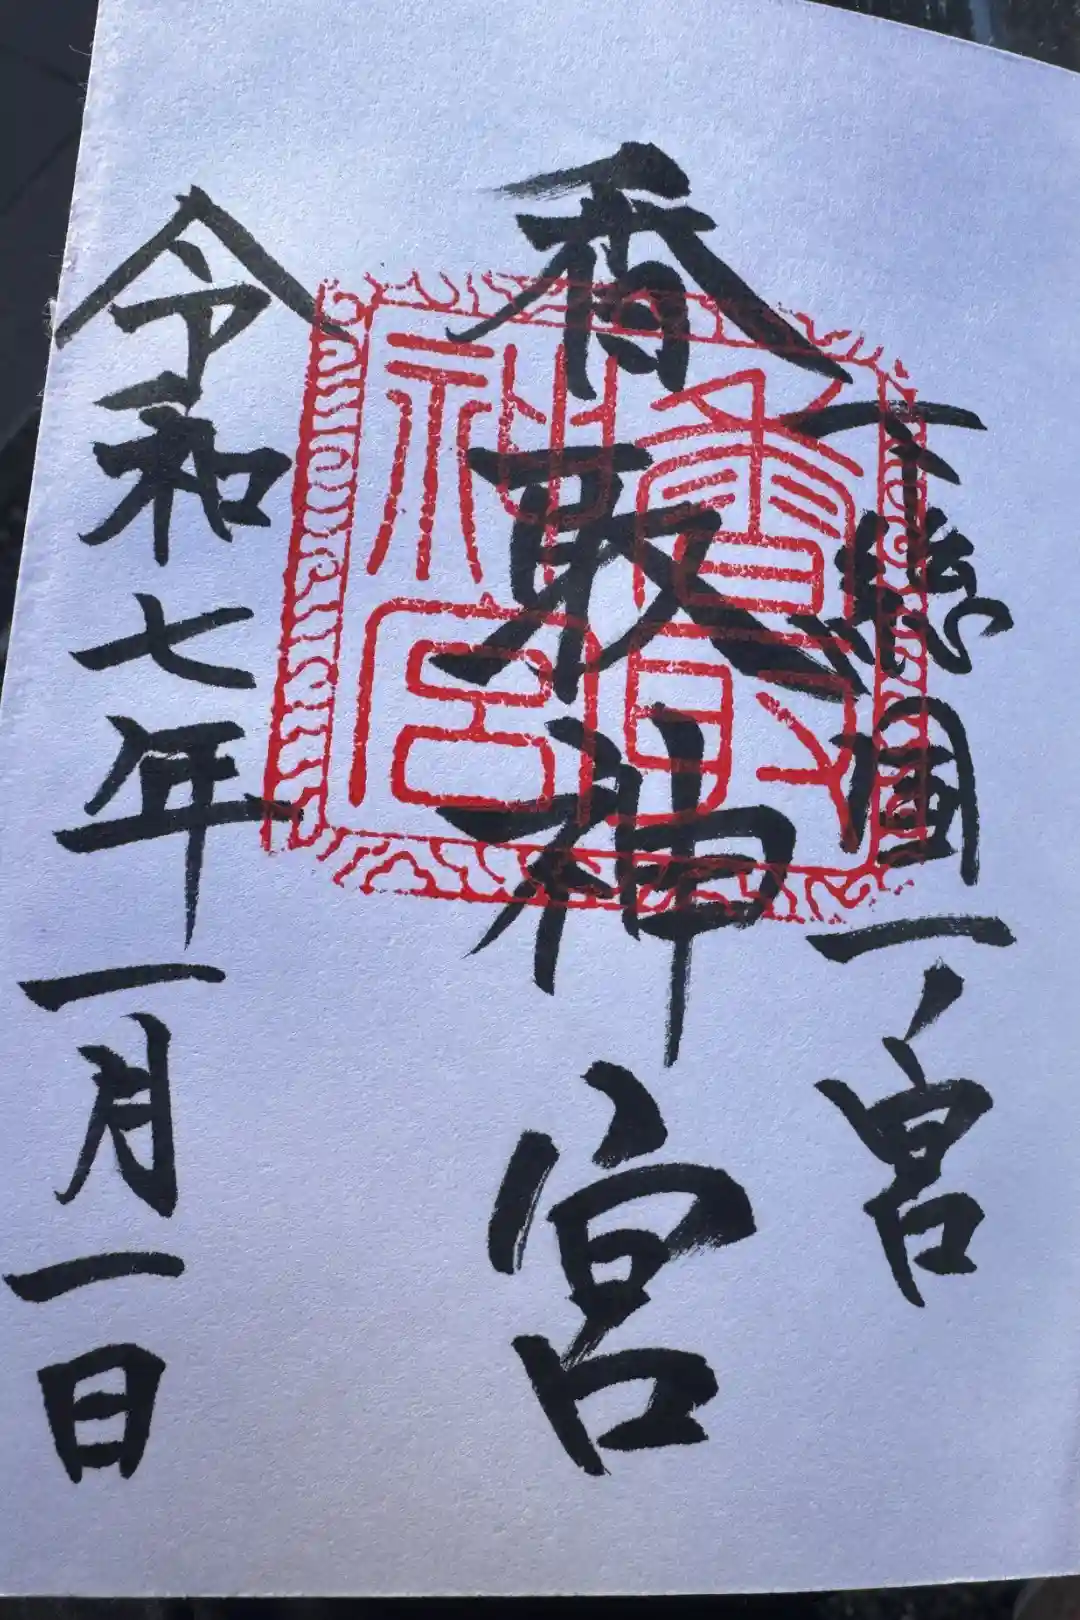 下総國一ノ宮
香取神宮
令和七年一月一日
香取神宮